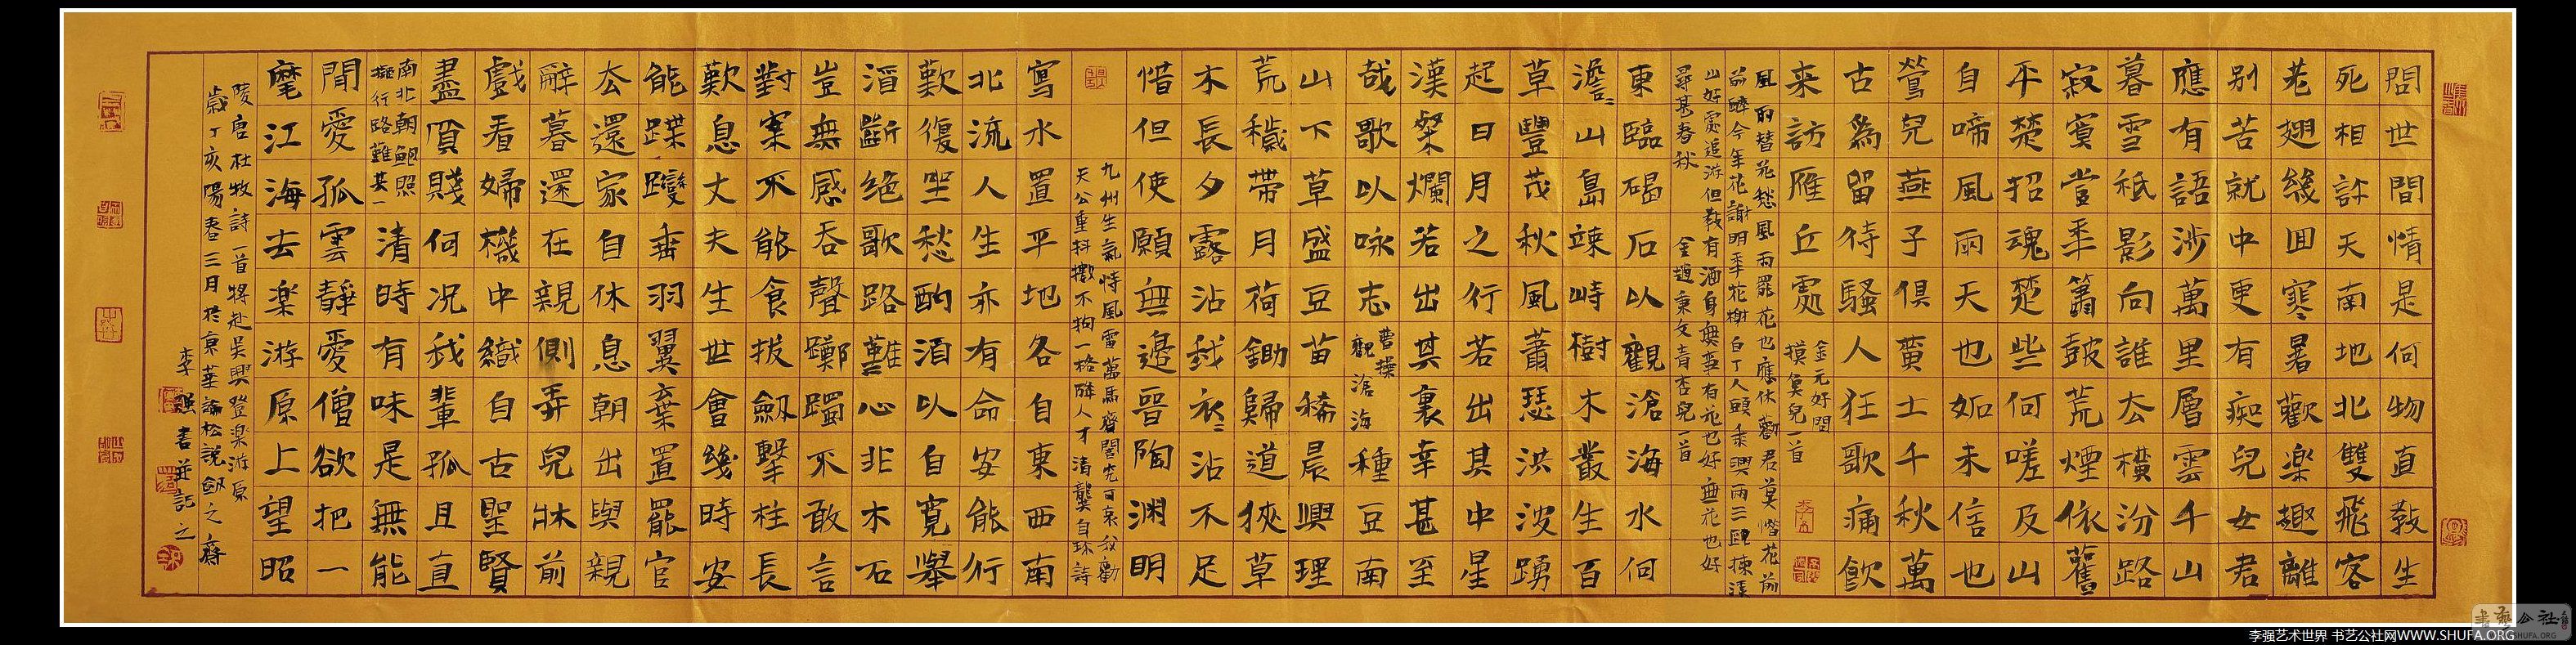 問世間情是何物直教生
死相許天南地北雙飛客
老翅幾回寒暑歡樂趣離
别苦就中更有痴兒女君
應有語渺萬里層雲千山
暮雪祗影向誰去橫汾路
寂寞當年簫鼓荒煙依舊
平楚招魂楚些何嗟及山
自啼風雨天也妬未信也
鶯兒燕子俱黄土千秋萬
古為留待騷人狂歌痛飲
来訪雁丘處
金元好問
摸魚兒一首
風雨替花愁風雨罷花也應休勸君莫惜花前
醉今年花謝明年花謝白丁人頭乘興兩三甌揀溪
山好處追游但教有酒身無事有花也好無花也好
尋甚春秋
金趙秉文青杏兒一首
東臨碣石以觀滄海水何
澹澹山島竦峙樹木叢生百
草豐茂秋風蕭瑟洪波踴
起日月之行若出其中星
漢燦爛若出其裏幸甚至
哉歌以咏志
曹操
觀滄海
種豆南
山下草盛豆苗稀晨興理
荒穢帶月荷鋤歸道狹草
木長夕露沾我衣衣沾不足
惜但使願無違晉陶淵明
九州生氣恃風雷萬馬齊闇究可哀我勸
天公重抖擻不拘一格降人才清龔自珍詩
寫水置平地各自東西南
北流人生亦有命安能行
歎復坐愁酌酒以自寬舉
酒斷绝歌路難心非木石
豈無感吞聲躑躅不敢言
對案不能食拔劒擊柱長
歎息丈夫生世會幾時安
能蹀躞垂羽翼棄置罷官
去還家自休息朝出與親
辭暮還在親側弄兒牀前
戲看婦機中織自古聖賢
盡貧賤何况我輩孤且直
南北朝鮑照
擬行路難其一
清時有味是無能
閒愛孤雲靜愛僧欲把一
麾江海去楽游原上望昭
陵唐杜牧詩一首將赴吳興登楽游原
歲丁亥陽春三月於京華論松説劒之齋
李强書並記之
李强艺术世界 书艺公社网WWW.SHUFA.ORG
书艺公社
SHUFA.ORG